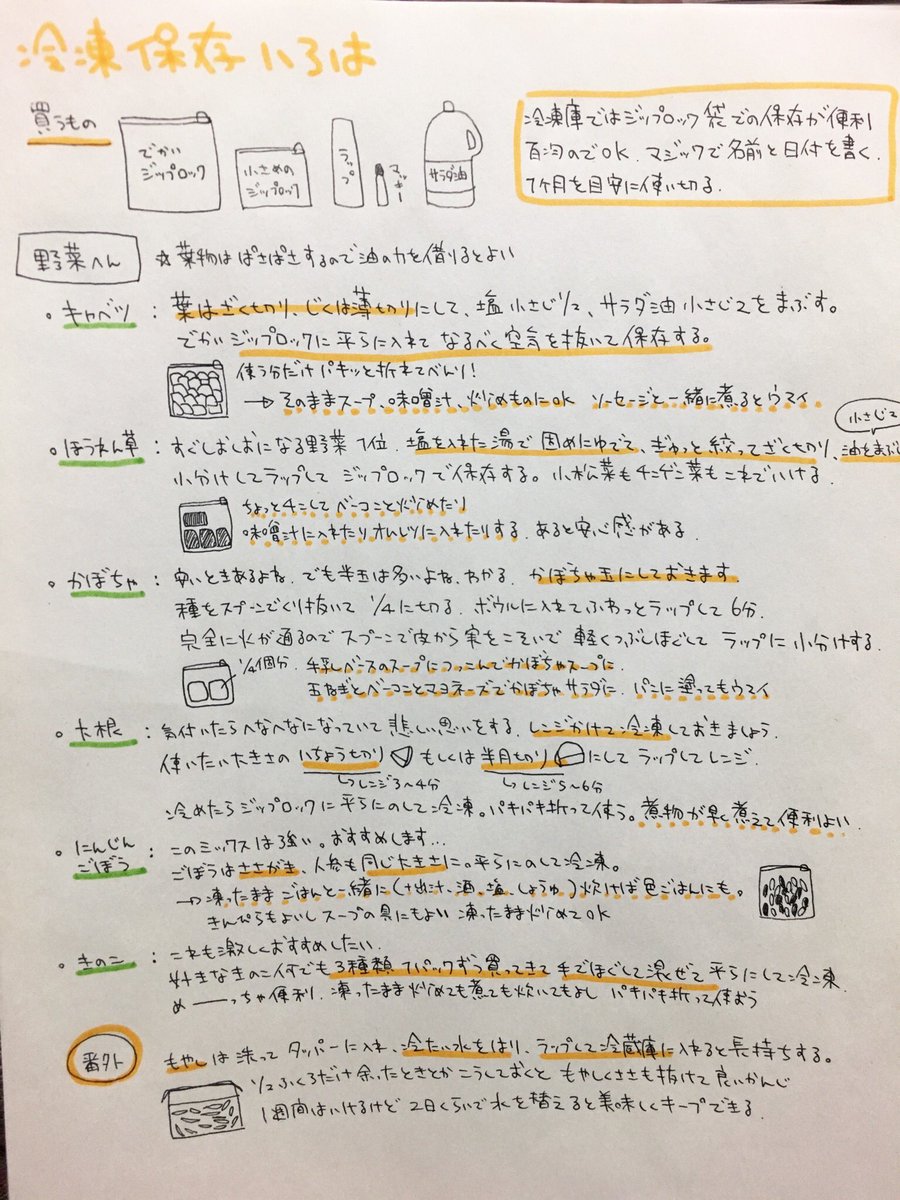 冷凍保存いろは
買うもの
でかい
ジップロック
小さめの
ジップロック
ラップ
マッキー
サラダ油
冷凍庫ではジップロック袋での保存が便利
百均のでOK. マジックで名前と日付を書く.
1ヶ月を目安に使い切る.
野菜へん
☆葉物はぱさぱさするので油の力を借りるとよい
・キャベツ：葉はざく切り、じくは薄切りにして、塩小さじ1/2、サラダ油小さじ2をまぶす。
でかいジップロックに平らに入れて なるべく空気を抜いて保存する。
使う分だけパキッと折れてべんり！
→そのままスープ、味噌汁、炒めものにOK ソーセージと一緒に煮るとウマイ
小さじ2
・ほうれん草：すぐしおしおになる野菜1位. 塩を入れた湯で固めにゆでて、ぎゅっと絞ってざく切り、油をまぶし
小分けしてラップして ジップロックで保存する。小松菜もチンゲン菜もこれでいける
ちょっとチンしてベーコンと炒めたり
味噌汁に入れたりオムレツに入れたりする. あると安心感がある
・かぼちゃ：安いときあるよね. でも半玉は多いよね. わかる. かぼちゃ玉にしておきます.
種をスプーンでくり抜いて 1/4に切る. ボウルに入れてふわっとラップして6分.
完全に火が通るのでスプーンで皮から実をこそいで 軽くつぶしほぐして ラップに小分けする
1/4個分. 牛乳ベースのスープにつっこんでかぼちゃスープに.
玉ねぎとベーコンとマヨネーズでかぼちゃサラダに. パンに塗ってもウマイ
・大根：気付いたらへなへなになっていて悲しい思いをする. レンジかけて冷凍しておきましょう.
使いたい大きさの いちょう切り もしくは 半月切り にして ラップしてレンジ.
↳レンジ3〜4分 ↳レンジ5〜6分
冷めたらジップロックに平らにのして冷凍. パキパキ折って使う。煮物が早く煮えて便利よい
・にんじん ごぼう：このミックスは強い。おすすめします…
ごぼうはささがき、人参も同じ大きさに。平らにのして冷凍。
→凍ったまま ごはんと一緒に(+出汁、酒、塩、しょうゆ)炊けば色ごはんにも。
きんぴらもよいしスープの具にもよい 凍ったまま炒めてOK
・きのこ：これも激しくおすすめしたい.
好きなきのこ何でも3種類1パックずつ買ってきて手でほぐして混ぜて平らにして冷凍
め──っちゃ便利. 凍ったまま炒めても煮ても炊いてもよし パキパキ折って使おう
番外
もやしは洗って タッパーに入れ、冷たい水をはり、ラップして冷蔵庫に入れると長持ちする。
1/2ふくろだけ余ったときとかこうしておくと もやしくささも抜けて良いかんじ
1週間はいけるけど 2日くらいで水を替えると美味しくキープできる.